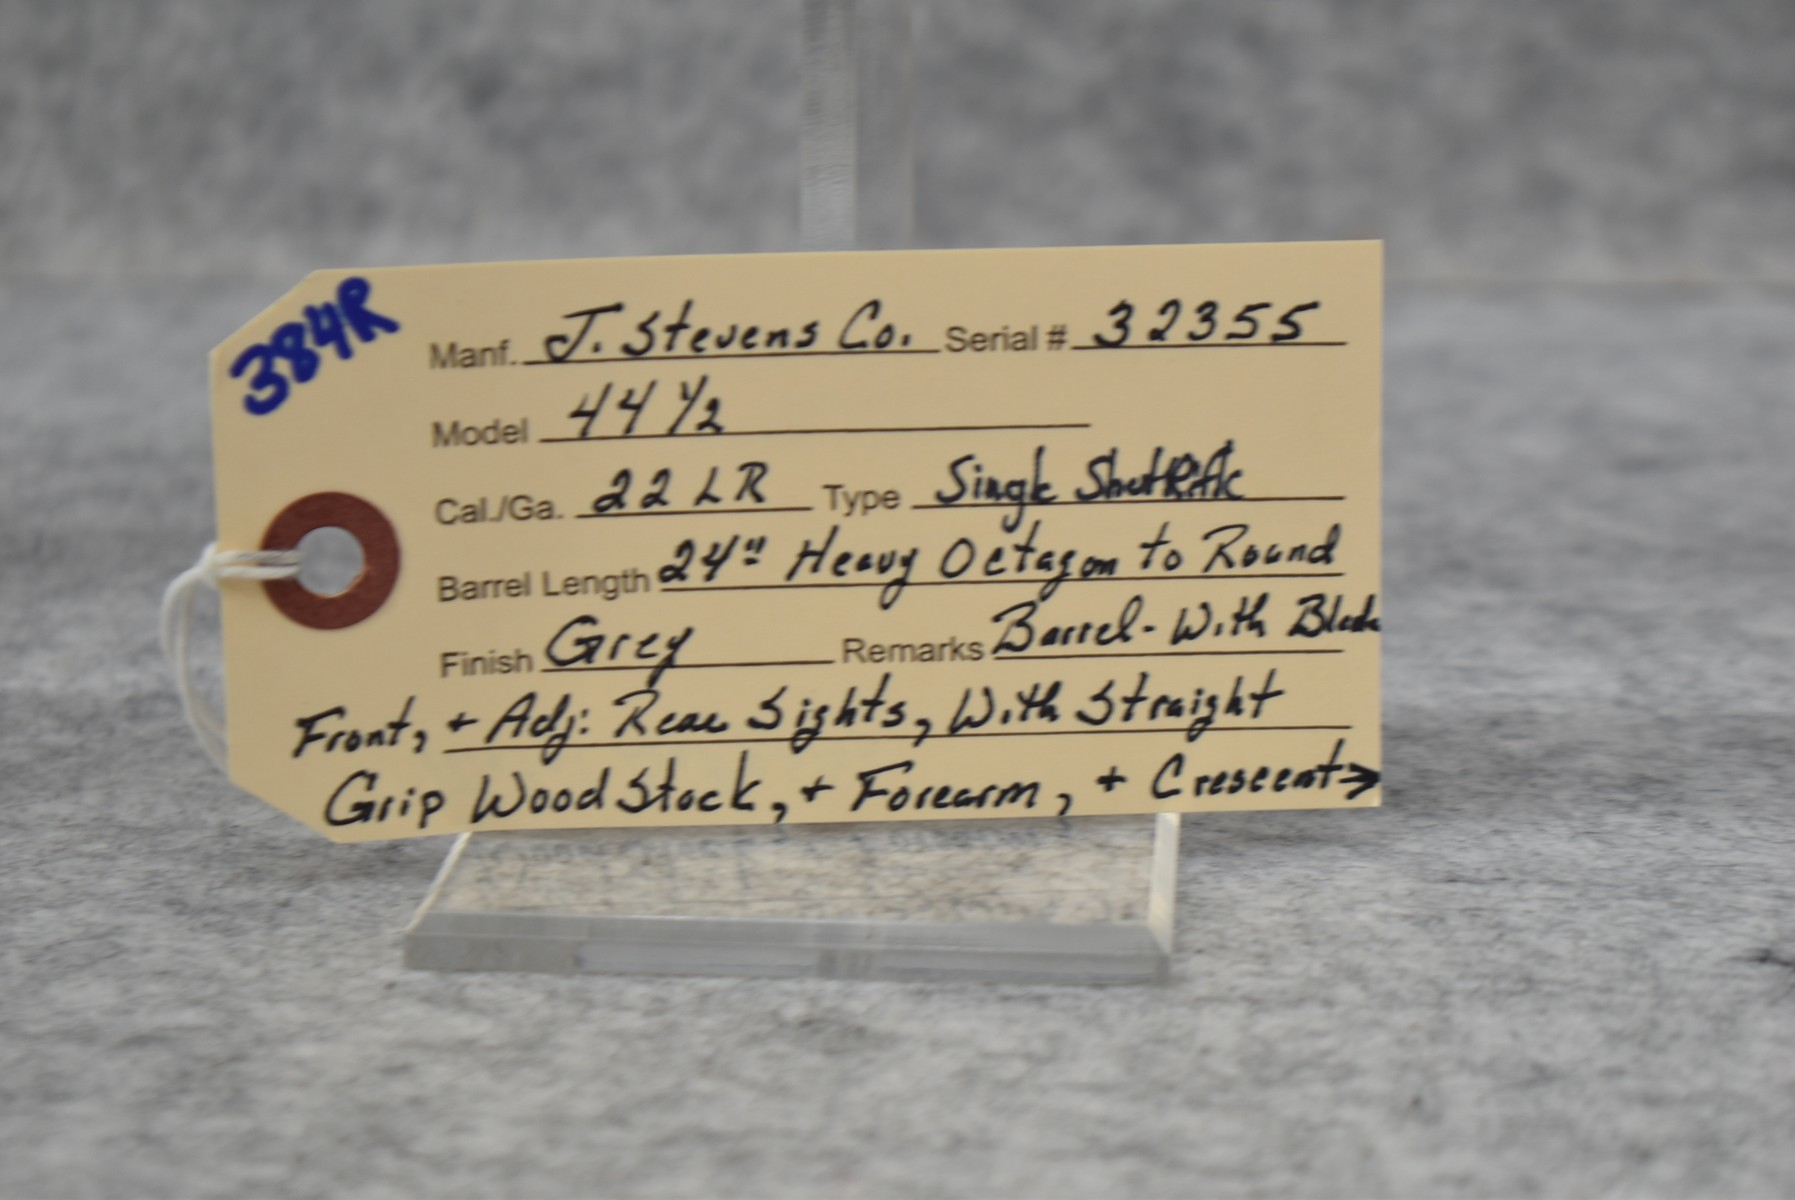 384R
Manf. J. Stevens Co. Serial # 32355
Model 44 1/2
Cal./Ga. 22 LR Type Single Shot Rifle
Barrel Length 24" Heavy Octagon to Round
Finish Grey Remarks Barrel - With Blade
Front, + Adj: Rear Sights, With Straight
Grip Wood Stock, + Forearm, + Crescent →